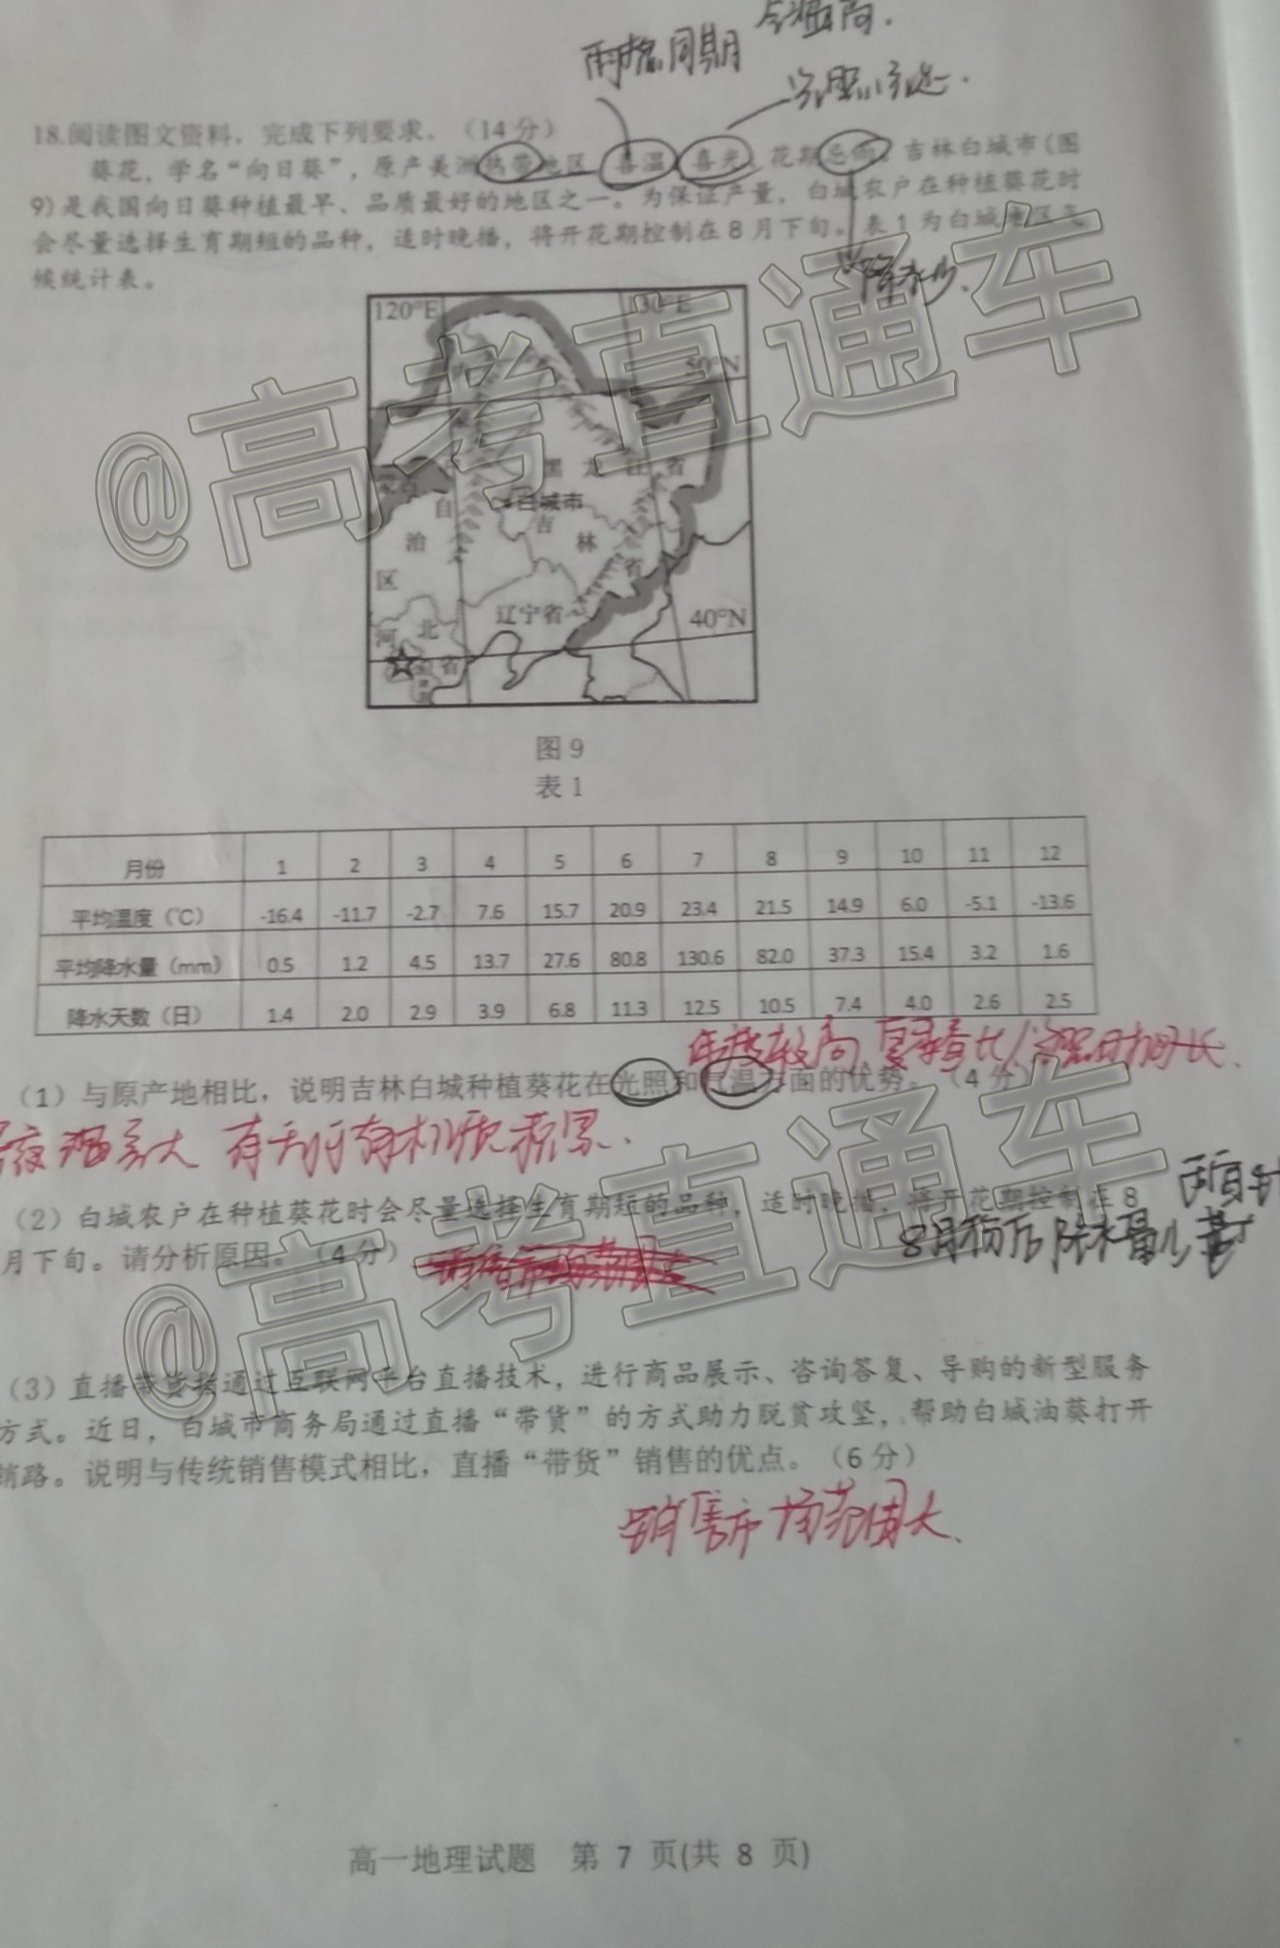 雨热同期
光照充足.
18.阅读图文资料，完成下列要求。（14分）
葵花，学名“向日葵”，原产美洲热带地区，喜温，喜光，花期忌雨。吉林白城市(图
9)是我国向日葵种植最早、品质最好的地区之一。为保证产量，白城农户在种植葵花时
会尽量选择生育期短的品种，适时晚播，将开花期控制在8月下旬。表1为白城地区气
候统计表。
降水少.
120°E 130°E
50°N
黑龙江省
自
白城市
治
吉
林
区
省
辽宁省
40°N
河北
省
图9
表1
月份 1 2 3 4 5 6 7 8 9 10 11 12
平均温度（℃） -16.4 -11.7 -2.7 7.6 15.7 20.9 23.4 21.5 14.9 6.0 -5.1 -13.6
平均降水量（mm） 0.5 1.2 4.5 13.7 27.6 80.8 130.6 82.0 37.3 15.4 3.2 1.6
降水天数（日） 1.4 2.0 2.9 3.9 6.8 11.3 12.5 10.5 7.4 4.0 2.6 2.5
纬度较高,夏季昼长,光照时间长.
（1）与原产地相比，说明吉林白城种植葵花在光照和气温方面的优势。（4分）
夜温差大 有利于有机质积累.
（2）白城农户在种植葵花时会尽量选择生育期短的品种，适时晚播，将开花期控制在8
月下旬。请分析原因。（4分）
8月份后降水量少
（3）直播带货指通过互联网平台直播技术，进行商品展示、咨询答复、导购的新型服务
方式。近日，白城市商务局通过直播“带货”的方式助力脱贫攻坚，帮助白城油葵打开
销路。说明与传统销售模式相比，直播“带货”销售的优点。（6分）
销售市场范围大.
高一地理试题 第 7 页(共 8 页)
@高考直通车
@高考直通车